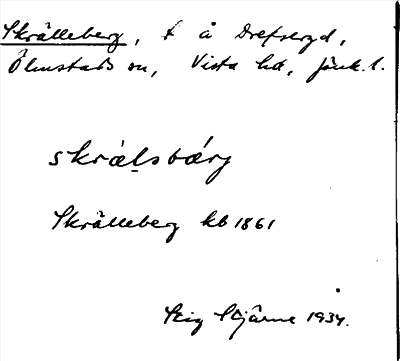 Skrälleberg, t å Drefseryd,
Ölmstads sn, Vista hd, Jönk. l.
skrälsbärg
Skrälleberg kb 1861
Stig Stjärne 1934.